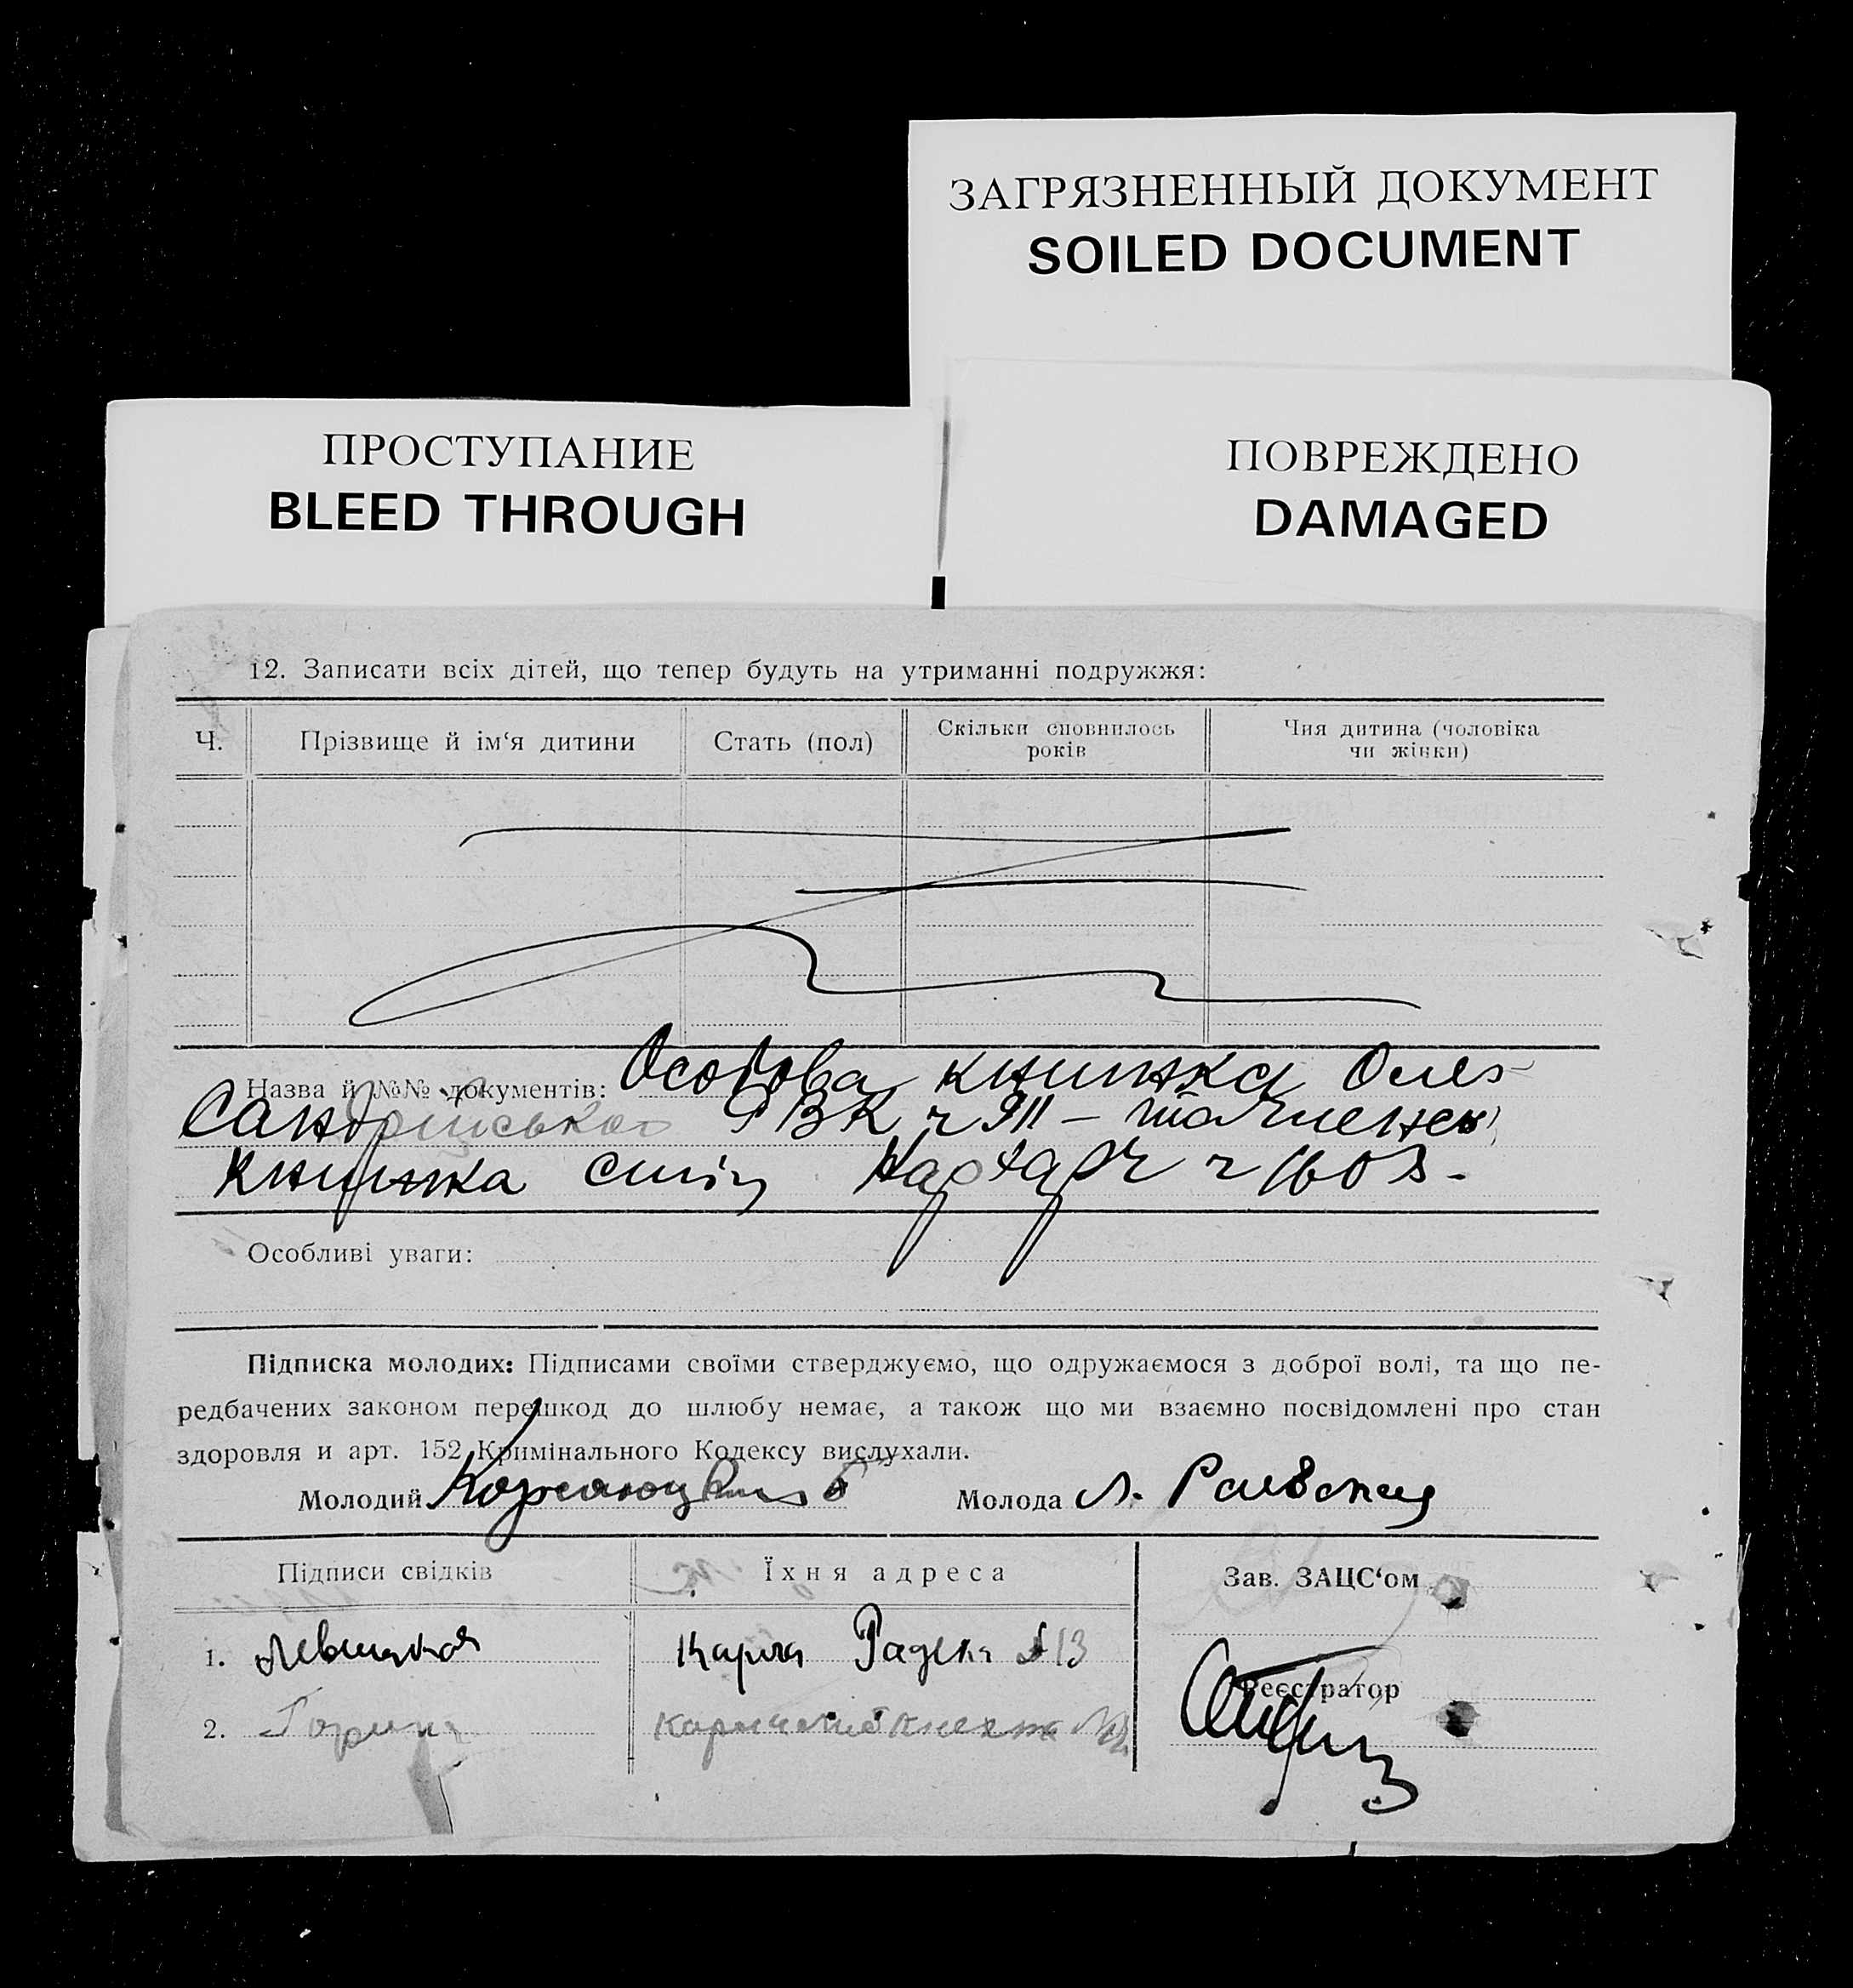 ЗАГРЯЗНЕННЫЙ ДОКУМЕНТ
SOILED DOCUMENT
ПРОСТУПАНИЕ
BLEED THROUGH
ПОВРЕЖДЕНО
DAMAGED
12. Записати всіх дітей, що тепер будуть на утриманні подружжя:
Ч.
Прізвище й ім‘я дитини
Стать (пол)
Скільки сповнилось
років
Чия дитина (чоловіка
чи жінки)
Назва й №№ документів: Особова книжка Олек
сандрійського РВК ч 911 —
книжка спіл ч 1603.
Особливі уваги:
Підписка молодих: Підписами своїми стверджуємо, що одружаємося з доброї волі, та що пе-
редбачених законом перешкод до шлюбу немає, а також що ми взаємно посвідомлені про стан
здоровля и арт. 152 Кримінального Кодексу вислухали.
Молодий
Молода Л. Раевская
Підписи свідків
Їхня адреса
Зав. ЗАЦС‘ом
1. Левицкая
Карла Радека 13
Реєстратор
2. Горина